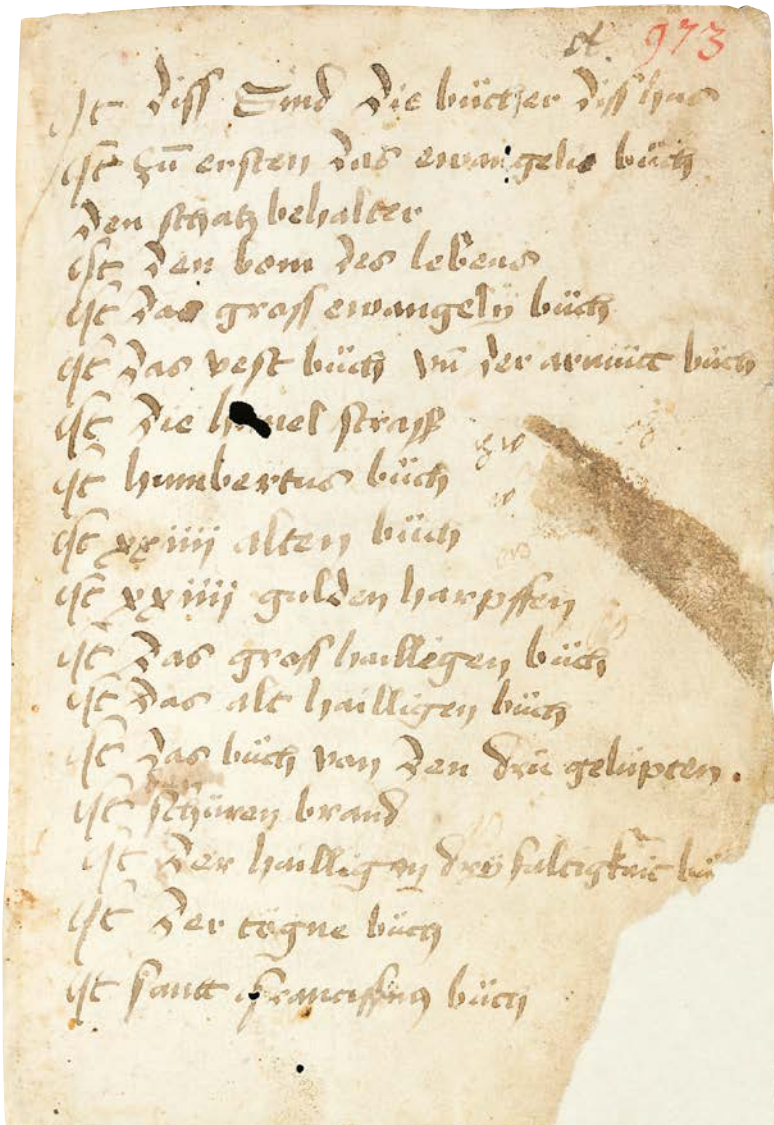 ct. 973
Jt diss Sind die bücher diss hus
Jt zũ ersten das ewangelio büch
den schatz behalter
Jt den bom des lebens
Jt das gross ewangely büch
Jt das vest büch vñ der armütt büch
Jt die himel strass
Jt humbertus büch
Jt xxiiij alten büch
Jt xxiiij gulden harpffen
Jt das gross hailligen büch
Jt das alt hailligen büch
Jt das büch von den drü gelüpten.
Jt schüren brand
Jt der hailligen dryfaltigkait bü
Jt der tögne büch
Jt santt franciskus büch